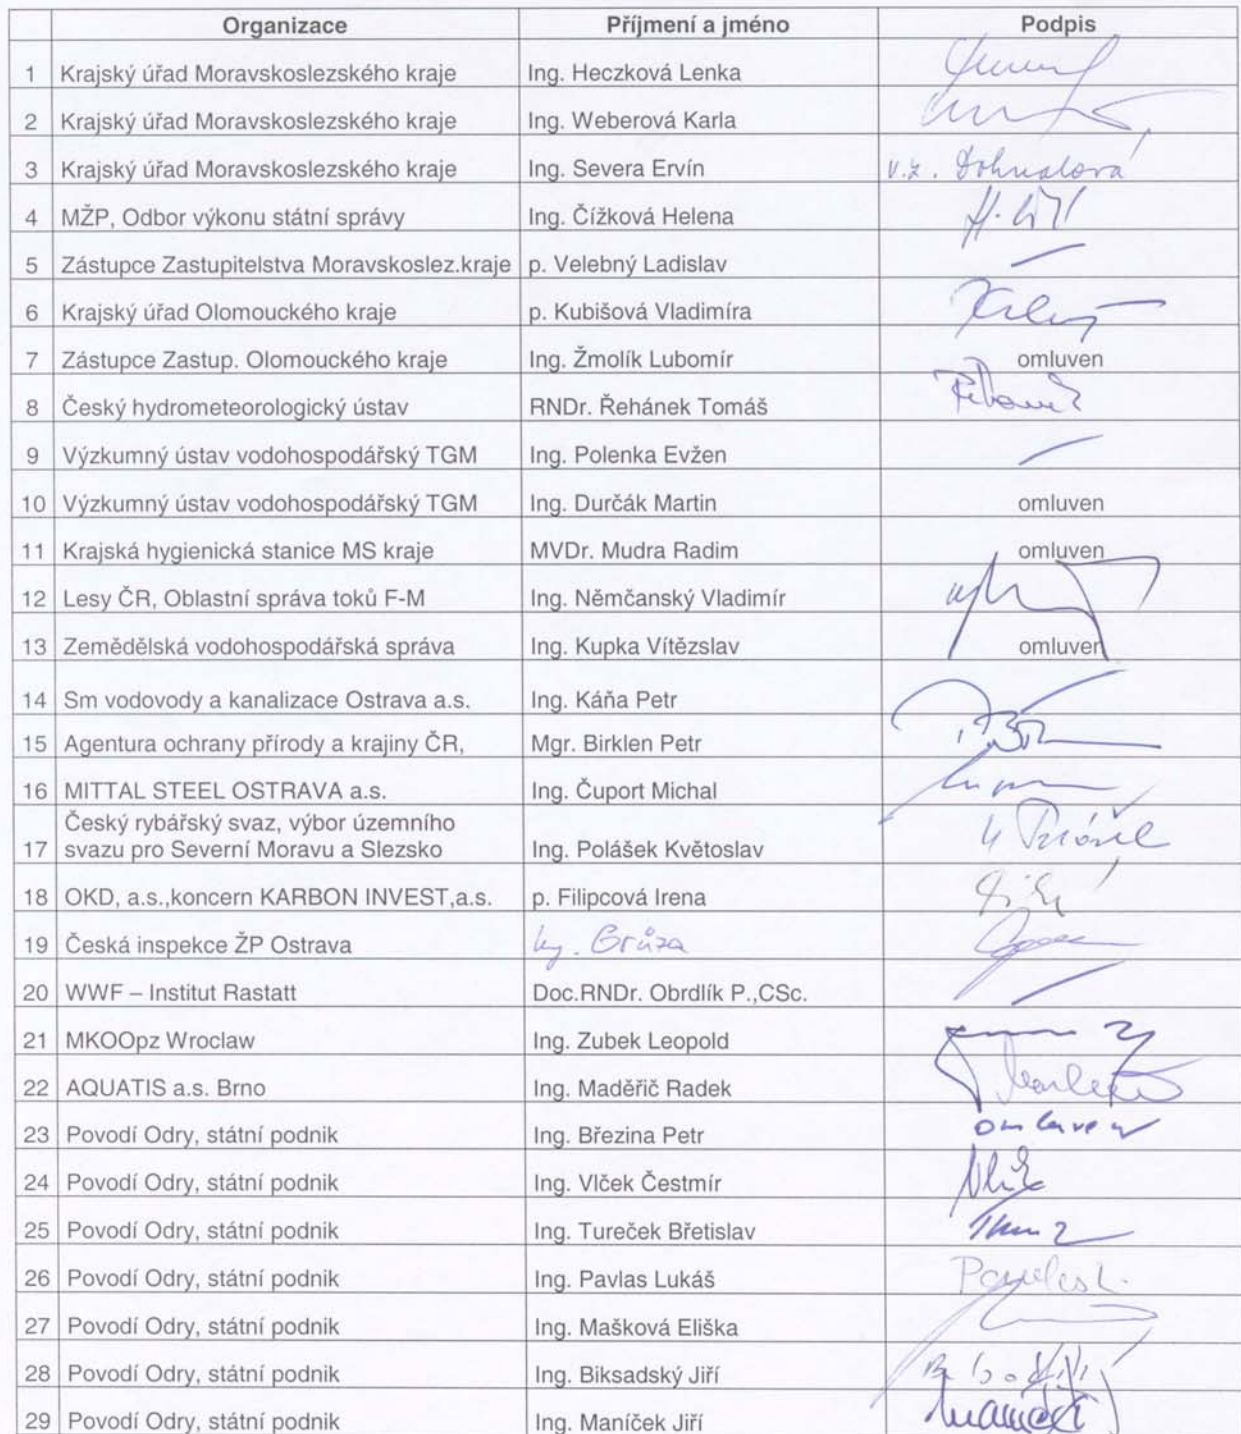 Organizace Příjmení a jméno Podpis
1 Krajský úřad Moravskoslezského kraje Ing. Heczková Lenka
2 Krajský úřad Moravskoslezského kraje Ing. Weberová Karla
3 Krajský úřad Moravskoslezského kraje Ing. Severa Ervín v.z. Dohnalová
4 MŽP, Odbor výkonu státní správy Ing. Čížková Helena
5 Zástupce Zastupitelstva Moravskoslez.kraje p. Velebný Ladislav
6 Krajský úřad Olomouckého kraje p. Kubišová Vladimíra
7 Zástupce Zastup. Olomouckého kraje Ing. Žmolík Lubomír omluven
8 Český hydrometeorologický ústav RNDr. Řehánek Tomáš
9 Výzkumný ústav vodohospodářský TGM Ing. Polenka Evžen
10 Výzkumný ústav vodohospodářský TGM Ing. Durčák Martin omluven
11 Krajská hygienická stanice MS kraje MVDr. Mudra Radim omluven
12 Lesy ČR, Oblastní správa toků F-M Ing. Němčanský Vladimír
13 Zemědělská vodohospodářská správa Ing. Kupka Vítězslav omluven
14 Sm vodovody a kanalizace Ostrava a.s. Ing. Káňa Petr
15 Agentura ochrany přírody a krajiny ČR, Mgr. Birklen Petr
16 MITTAL STEEL OSTRAVA a.s. Ing. Čuport Michal
Český rybářský svaz, výbor územního
17 svazu pro Severní Moravu a Slezsko Ing. Polášek Květoslav
18 OKD, a.s.,koncern KARBON INVEST,a.s. p. Filipcová Irena
19 Česká inspekce ŽP Ostrava Ing. Grůza
20 WWF – Institut Rastatt Doc.RNDr. Obrdlík P.,CSc.
21 MKOOpz Wroclaw Ing. Zubek Leopold
22 AQUATIS a.s. Brno Ing. Maděřič Radek
23 Povodí Odry, státní podnik Ing. Březina Petr omluven
24 Povodí Odry, státní podnik Ing. Vlček Čestmír
25 Povodí Odry, státní podnik Ing. Tureček Břetislav
26 Povodí Odry, státní podnik Ing. Pavlas Lukáš Pavlas L.
27 Povodí Odry, státní podnik Ing. Mašková Eliška
28 Povodí Odry, státní podnik Ing. Biksadský Jiří
29 Povodí Odry, státní podnik Ing. Maníček Jiří